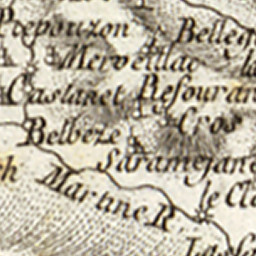 Prepouzon
Belleg
Merveillac
la
Castanet
Resouran
Cros
Belbeze
Saramejane
h
Martine R.
le Cl